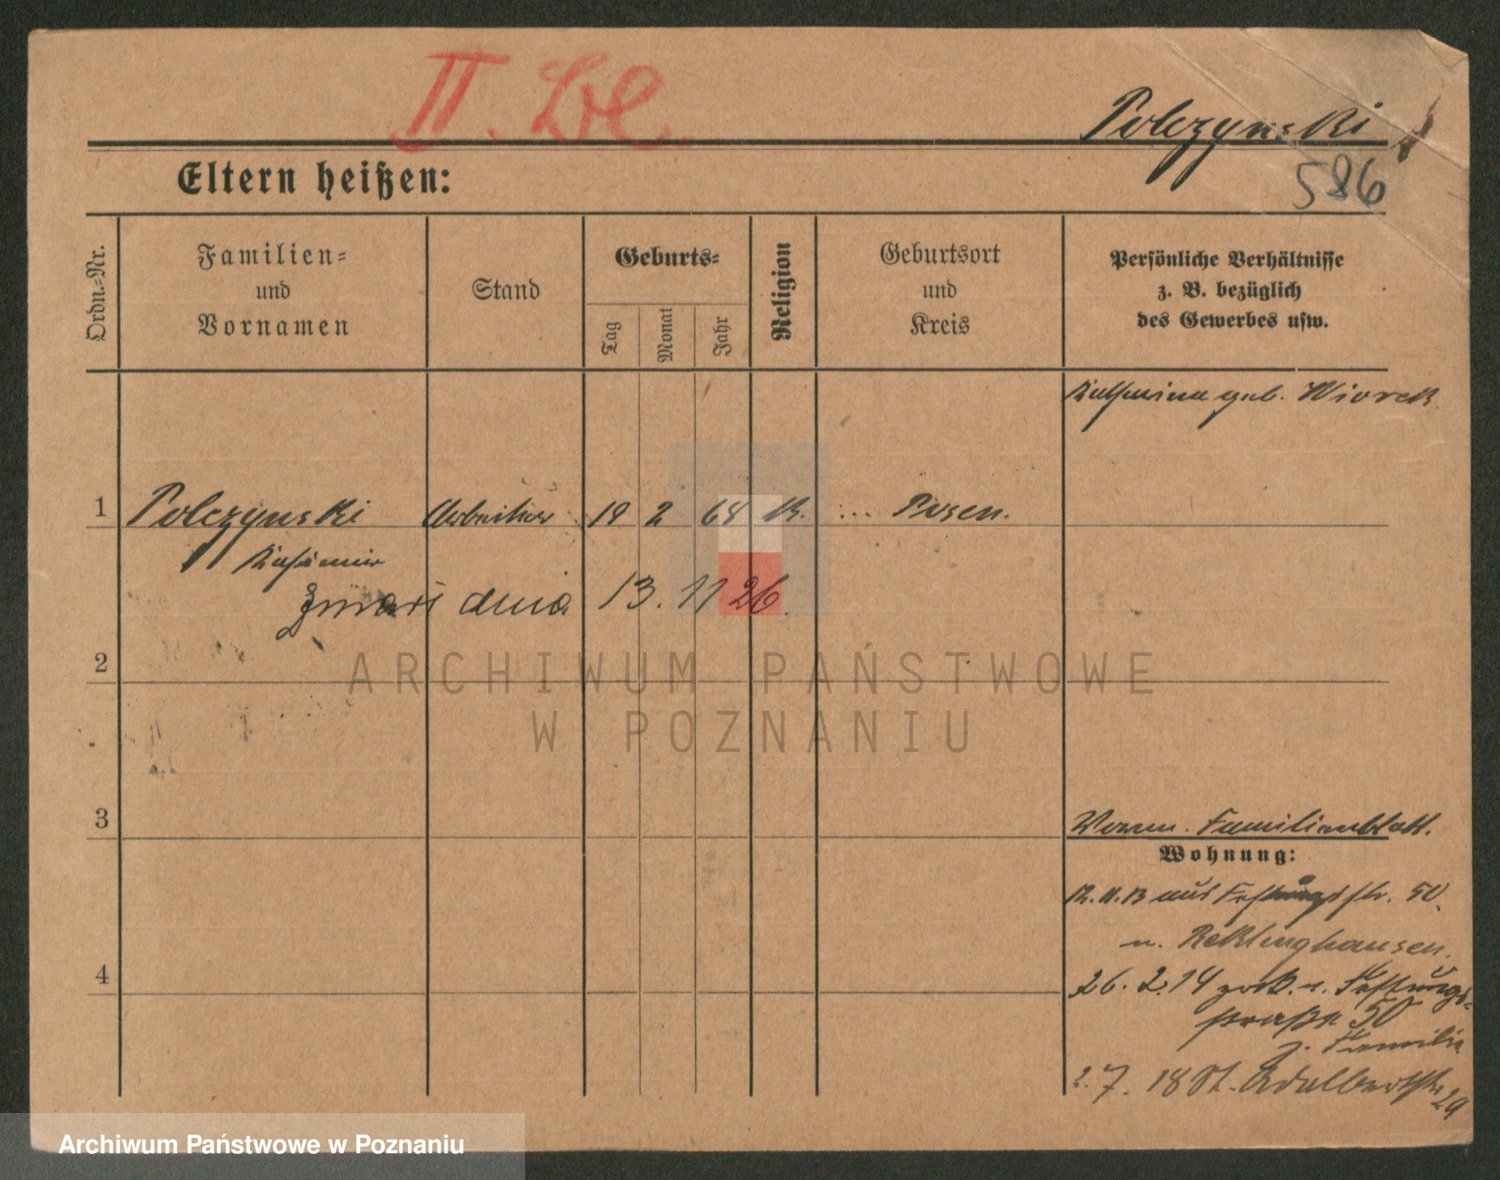 II. Bl.
Polczynski
586
Eltern heißen:
Ordn.-Nr.
Familien-
und
Vornamen
Stand
Geburts-
Tag
Monat
Jahr
Religion
Geburtsort
und
Kreis
Persönliche Verhältnisse
z. B. bezüglich
des Gewerbes usw.
Katharina geb. Wiorek
1 Polczynski Arbeiter 19 2 68 K. ... Posen.
Kasimir
Zmarł dnia 13. 11 26.
2
ARCHIWUM PAŃSTWOWE
W POZNANIU
3
Familienblatt.
Wohnung:
12.11.13 aus Festungsstr. 50.
n. Recklinghausen.
4
26. 2. 14 zurück. n. Festungs-
straße 50
z. Familie
2. 7. 18 St. Adalbertstr. 29
Archiwum Państwowe w Poznaniu